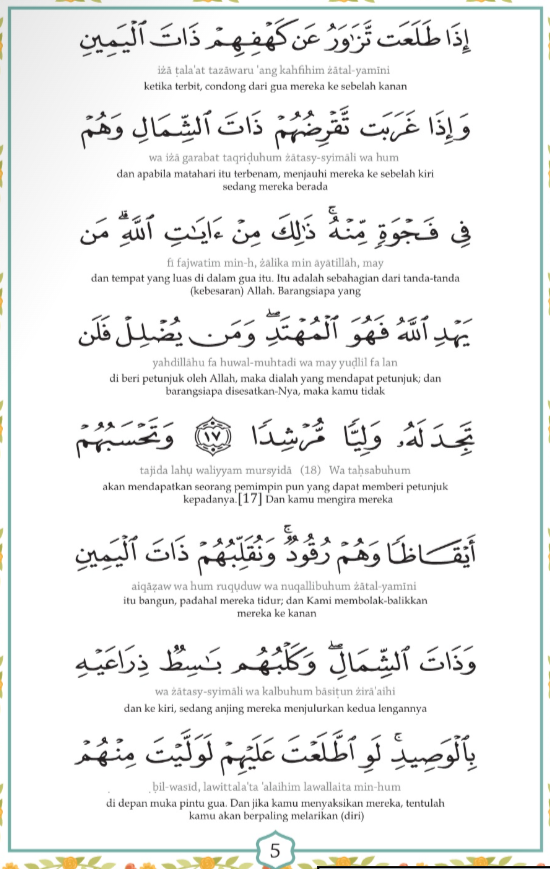 إِذَا طَلَعَت تَّزَٰوَرُ عَن كَهْفِهِمْ ذَاتَ ٱلْيَمِينِ
iżā ṭala'at tazāwaru 'ang kahfihim żātal-yamīni
ketika terbit, condong dari gua mereka ke sebelah kanan
وَإِذَا غَرَبَت تَّقْرِضُهُمْ ذَاتَ ٱلشِّمَالِ وَهُمْ
wa iżā garabat taqriḍuhum żātasy-syimāli wa hum
dan apabila matahari itu terbenam, menjauhi mereka ke sebelah kiri
sedang mereka berada
فِى فَجْوَةٍ مِّنْهُ ۚ ذَٰلِكَ مِنْ ءَايَـٰتِ ٱللَّهِ ۗ مَن
fī fajwatim min-h, żālika min āyātillāh, may
dan tempat yang luas di dalam gua itu. Itu adalah sebahagian dari tanda-tanda
(kebesaran) Allah. Barangsiapa yang
يَهْدِ ٱللَّهُ فَهُوَ ٱلْمُهْتَدِ ۖ وَمَن يُضْلِلْ فَلَن
yahdillāhu fa huwal-muhtadi wa may yuḍlil fa lan
di beri petunjuk oleh Allah, maka dialah yang mendapat petunjuk; dan
barangsiapa disesatkan-Nya, maka kamu tidak
تَجِدَ لَهُۥ وَلِيًّا مُّرْشِدًا ١٧ وَتَحْسَبُهُمْ
tajida lahụ waliyyam mursyidā (18) Wa taḥsabuhum
akan mendapatkan seorang pemimpin pun yang dapat memberi petunjuk
kepadanya.[17] Dan kamu mengira mereka
أَيْقَاظًا وَهُمْ رُقُودٌ ۚ وَنُقَلِّبُهُمْ ذَاتَ ٱلْيَمِينِ
aiqāẓaw wa hum ruqụduw wa nuqallibuhum żātal-yamīni
itu bangun, padahal mereka tidur; dan Kami membolak-balikkan
mereka ke kanan
وَذَاتَ ٱلشِّمَالِ ۖ وَكَلْبُهُم بَـٰسِطٌ ذِرَاعَيْهِ
wa żātasy-syimāli wa kalbuhum bāsiṭun żirā'aihi
dan ke kiri, sedang anjing mereka menjulurkan kedua lengannya
بِٱلْوَصِيدِ ۚ لَوِ ٱطَّلَعْتَ عَلَيْهِمْ لَوَلَّيْتَ مِنْهُمْ
bil-waṣīd, lawiṭṭala'ta 'alaihim lawallaita min-hum
di depan muka pintu gua. Dan jika kamu menyaksikan mereka, tentulah
kamu akan berpaling melarikan (diri)
5